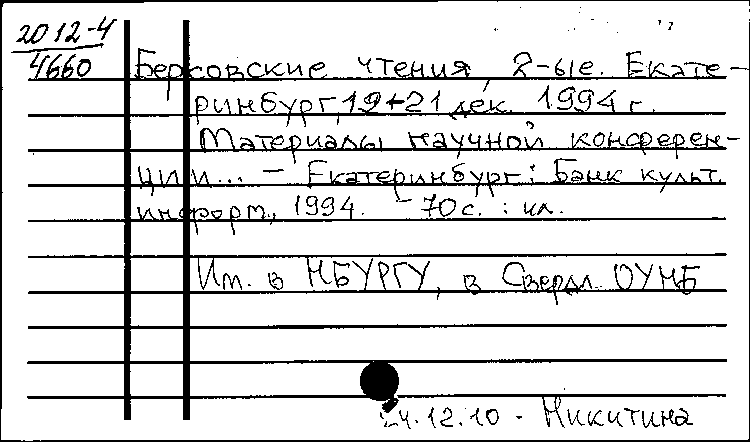 2012-4
4660
Берсовские чтения, 2-ые. Екате-
ринбург, 19-21 дек. 1994 г.
Материалы научной конферен-
ции... - Екатеринбург: Банк культ.
информ., 1994. - 70 с. : ил.
Им. в НБУРГУ, в Свердл. ОУНБ
24.12.10 - Никитина